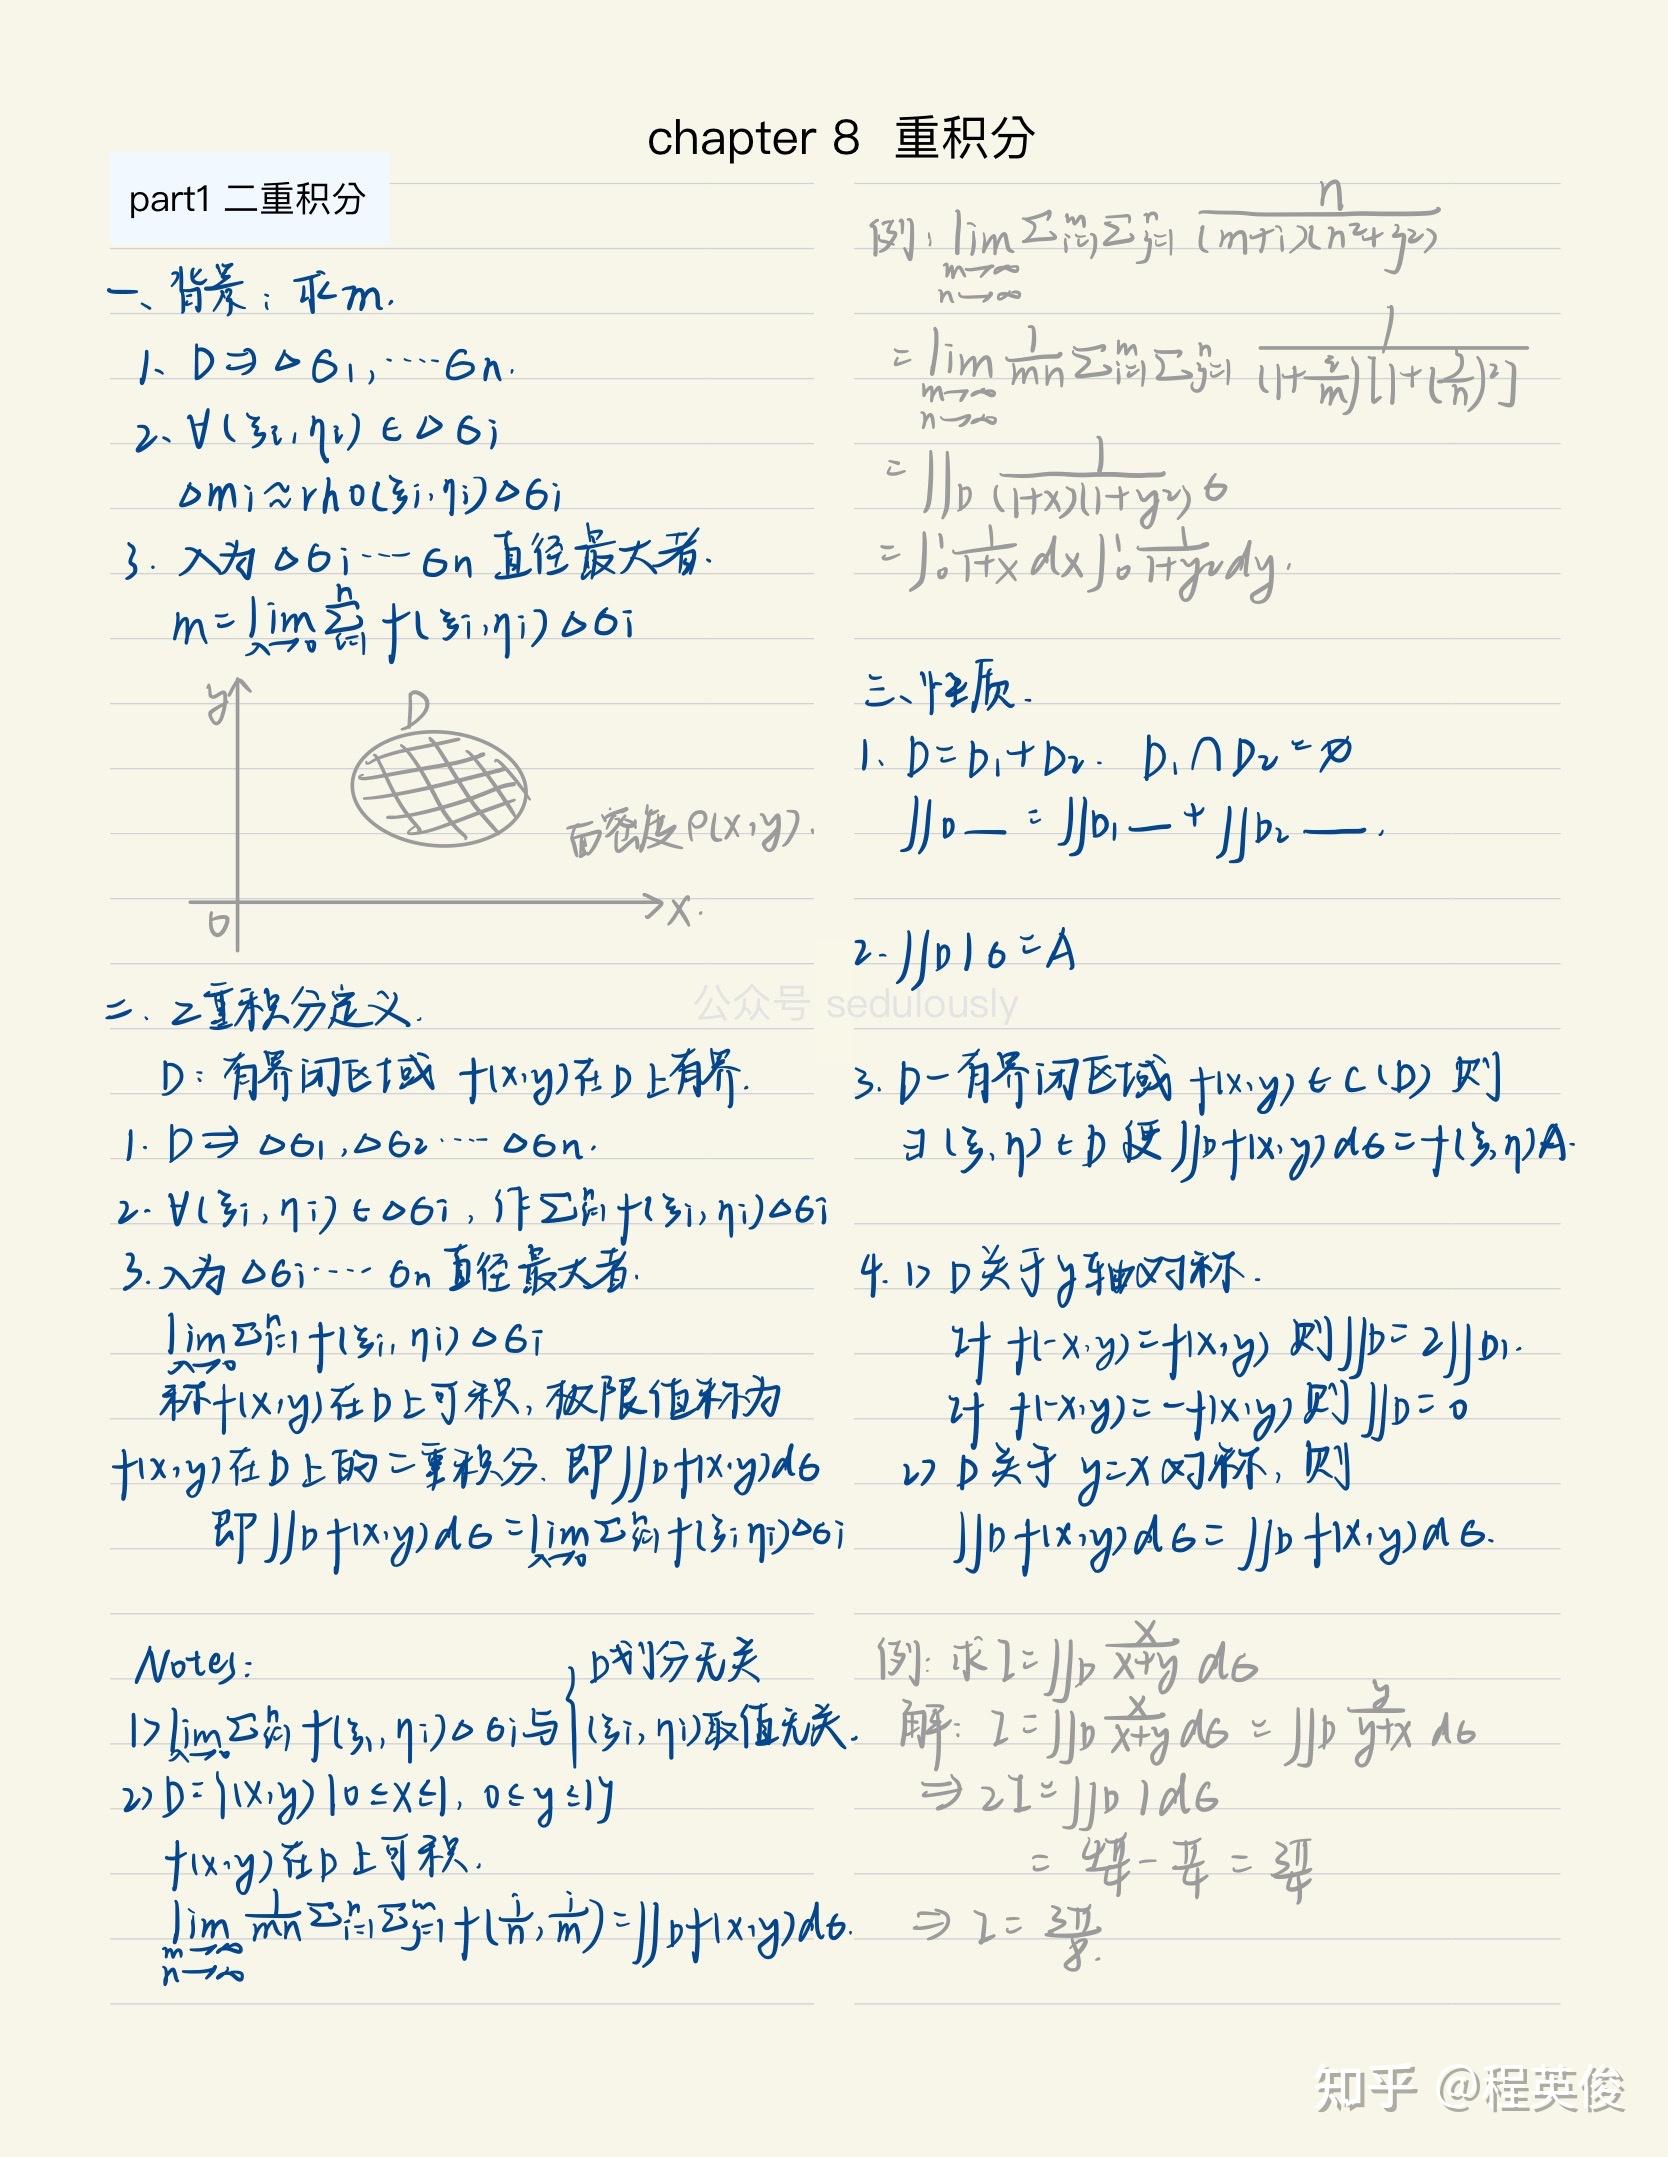 chapter 8 重积分
part1 二重积分
一、背景：求m.
1、D⇒△6₁,····6n.
2、∀(ξi,ηi)∈△6i
△mi≈rho(ξi,ηi)△6i
3. 入为△6i····6n直径最大者.
m=lim_{λ→0} Σ_{i=1}^{n} f(ξi,ηi)△6i
y
D
面密度ρ(x,y).
0
x.
二、二重积分定义.
D：有界闭区域 f(x,y)在D上有界.
1. D⇒△6₁,△6₂····△6n.
2. ∀(ξi,ηi)∈△6i, 作Σ_{i=1}^{n} f(ξi,ηi)△6i
3. 入为△6i····6n直径最大者.
lim_{λ→0} Σ_{i=1}^{n} f(ξi,ηi)△6i
称f(x,y)在D上可积，极限值称为
f(x,y)在D上的二重积分. 即∬D f(x,y)d6
即∬D f(x,y)d6=lim_{λ→0} Σ_{i=1}^{n} f(ξi,ηi)△6i
Notes:
D划份无关
1> lim_{λ→0} Σ_{i=1}^{n} f(ξi,ηi)△6i与{(ξi,ηi)取值无关.
2> D={(x,y)|0≤x≤1, 0≤y≤1}
f(x,y)在D上可积.
lim_{m→∞ n→∞} 1/mn Σ_{i=1}^{n} Σ_{j=1}^{m} f(i/n, j/m)=∬D f(x,y)d6.
例：lim_{m→∞ n→∞} Σ_{i=1}^{m} Σ_{j=1}^{n} n/(m+i)(n²+j²)
=lim_{m→∞ n→∞} 1/mn Σ_{i=1}^{m} Σ_{j=1}^{n} 1/(1+i/m)[1+(j/n)²]
=∬D 1/(1+x)(1+y²) 6
=∫₀¹ 1/1+x dx ∫₀¹ 1/1+y² dy.
三、性质.
1、D=D₁+D₂. D₁∩D₂=∅
∬D — = ∬D₁ — + ∬D₂ —.
2. ∬D 1 6=A
公众号 sedulously
3. D-有界闭区域 f(x,y)∈C(D) 则
∃(ξ,η)∈D 使∬D f(x,y)d6=f(ξ,η)A.
4. 1> D关于y轴对称.
if f(-x,y)=f(x,y) 则∬D=2∬D₁.
if f(-x,y)=-f(x,y) 则∬D=0
2> D关于y=x对称，则
∬D f(x,y)d6=∬D f(x,y)d6.
例：求I=∬D x/x+y d6
解：I=∬D x/x+y d6=∬D y/y+x d6
⇒2I=∬D 1 d6
= 4π/4 - π/4 = 3π/4
⇒I=3π/8.
知乎 @程英俊